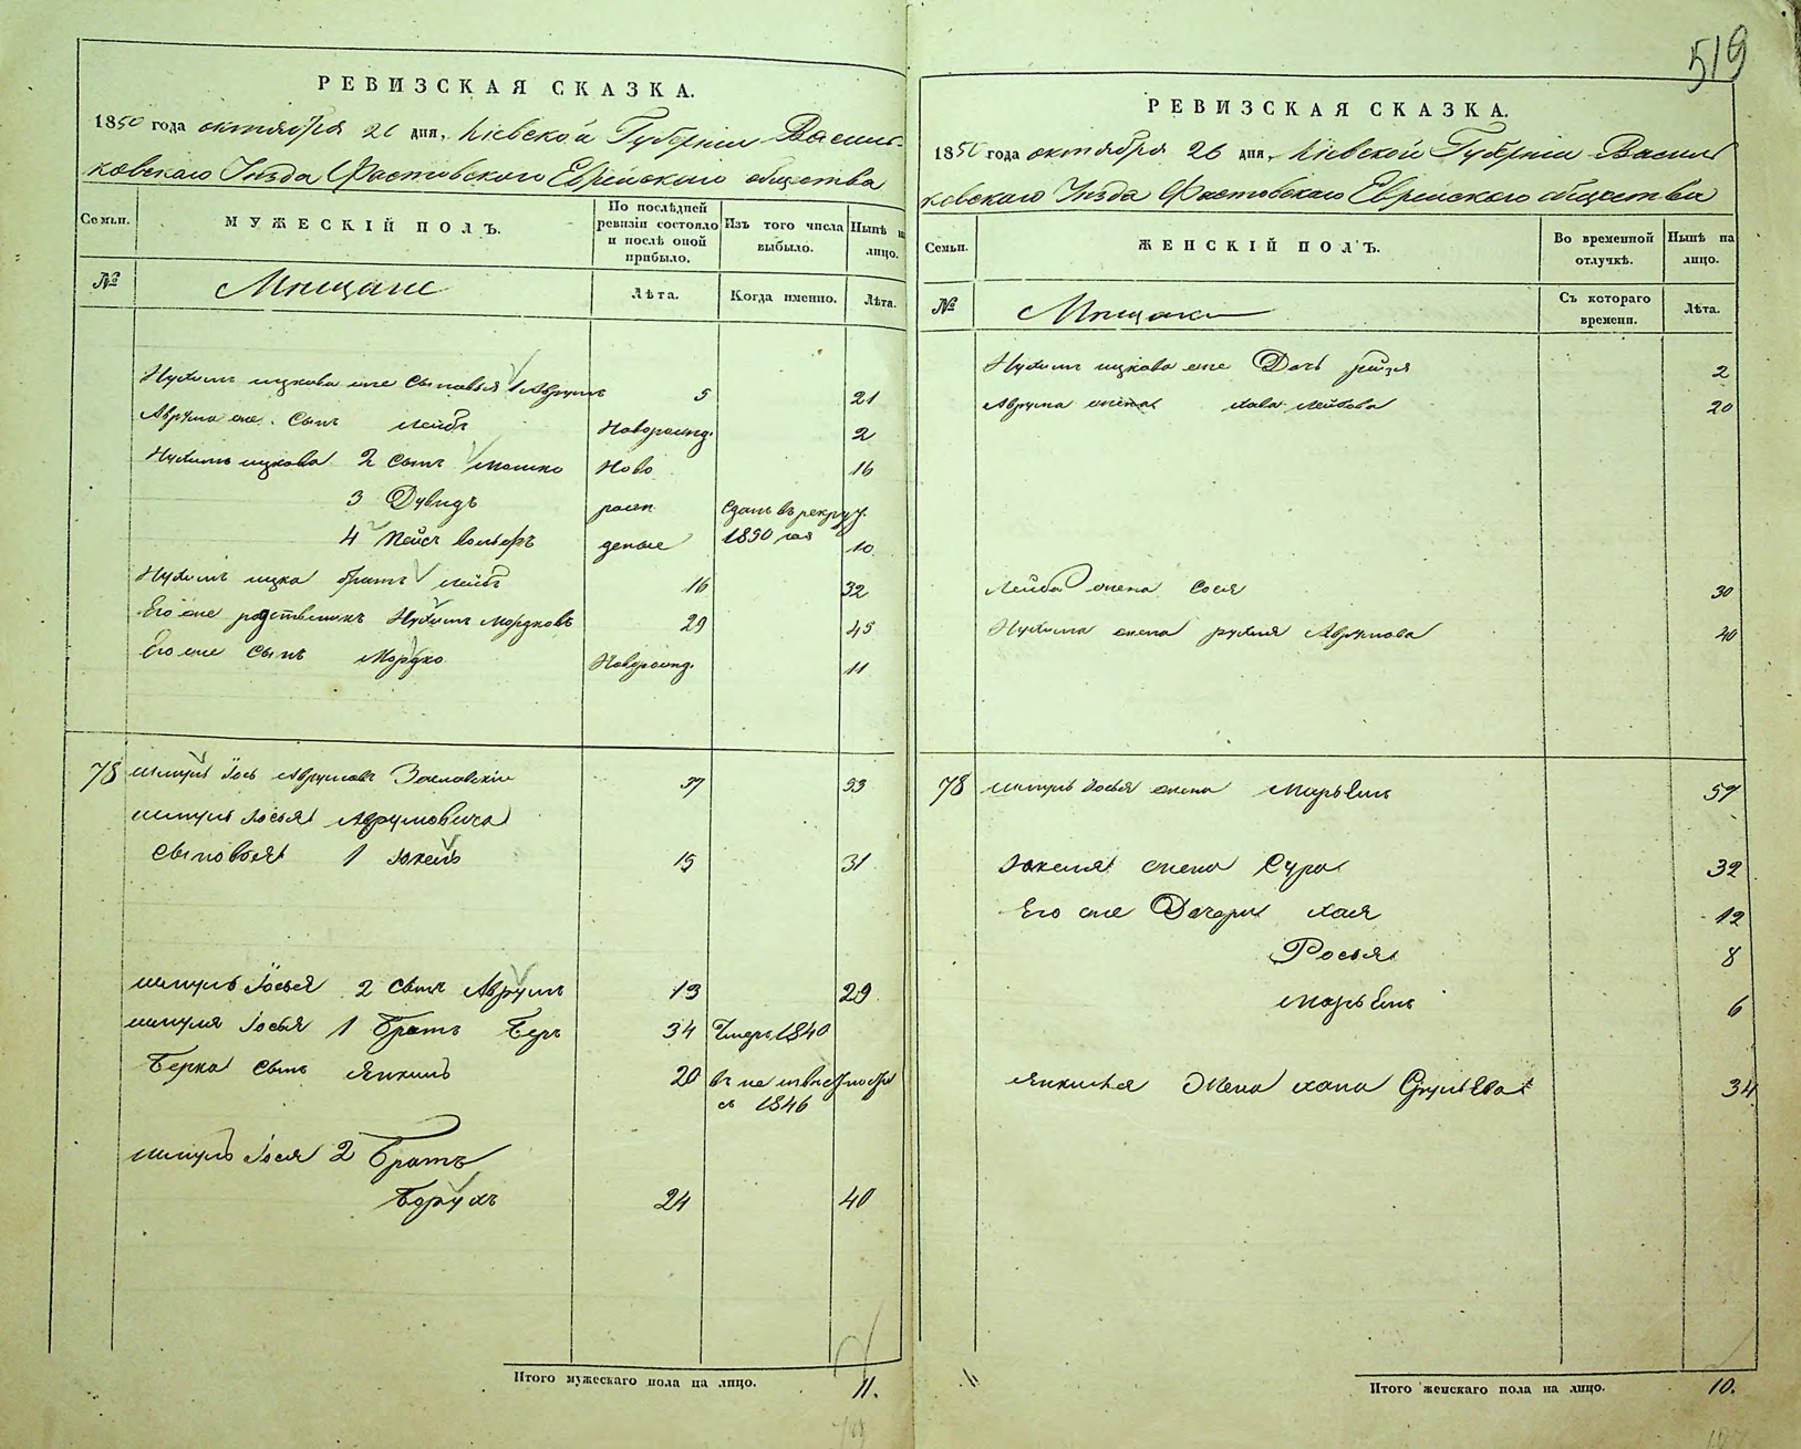 519
РЕВИЗСКАЯ СКАЗКА.
1850 года октября 26 дня, Кіевской Губерніи Василь-
ковскаго Уѣзда Фастовскаго Еврейскаго общества
Семьи.
МУЖЕСКІЙ ПОЛЪ.
По послѣдней ревизіи состояло и послѣ оной прибыло.
Изъ того числа выбыло.
Нынѣ на лицо.
№
Мѣщане
Лѣта.
Когда именно.
Лѣта.
Нухимъ ицкова же Сыновья 1 Аврумъ 5 21
Аврума же Сынъ Лейбъ Новорожд. 2
Нухимъ ицкова 2 Сынъ Мошко Ново 16
3 Дувидъ рож Сданъ въ рекруты
4 Пейсъ Вольфъ деные 1850 год 10
Нухимъ ицка братъ Лейбъ 16 32
Его же родственикъ Нухимъ Мордковъ 29 45
Его же Сынъ Мордко Новорожд. 11
78 Шмуль Іось Аврумовъ Заславскіи 37 53
Шмуль Іосья Аврумовича
Сыновья 1 Іокель 15 31
Шмуль Іосья 2 Сынъ Аврумъ 13 29
Шмуля Іосья 1 Братъ Беръ 34 Умеръ 1840
Берка Сынъ Янкель 20 въ не извѣстности
съ 1846
Шмуль Іося 2 Братъ
Борухъ 24 40
Итого мужескаго пола на лицо. 11.
РЕВИЗСКАЯ СКАЗКА.
1850 года октября 26 дня, Кіевской Губерніи Василь
ковскаго Уѣзда Фастовскаго Еврейскаго общества
Семьи.
ЖЕНСКІЙ ПОЛЪ.
Во временной отлучкѣ.
Нынѣ на лицо.
№
Мѣщане
Съ котораго времени.
Лѣта.
Нухимъ ицкова же Дочь рейзя 2
Аврума жена хава Лейбова 20
Лейба жена Сося 30
Нухима жена рухля Аврумова 40
78 Шмуль Іосья жена Марьямъ 57
Іокеля жена Сура 32
Его же Дочери хася 12
Росья 8
Марьямъ 6
Янкиля Жена хана Срулева 34
Итого женскаго пола на лицо. 10.